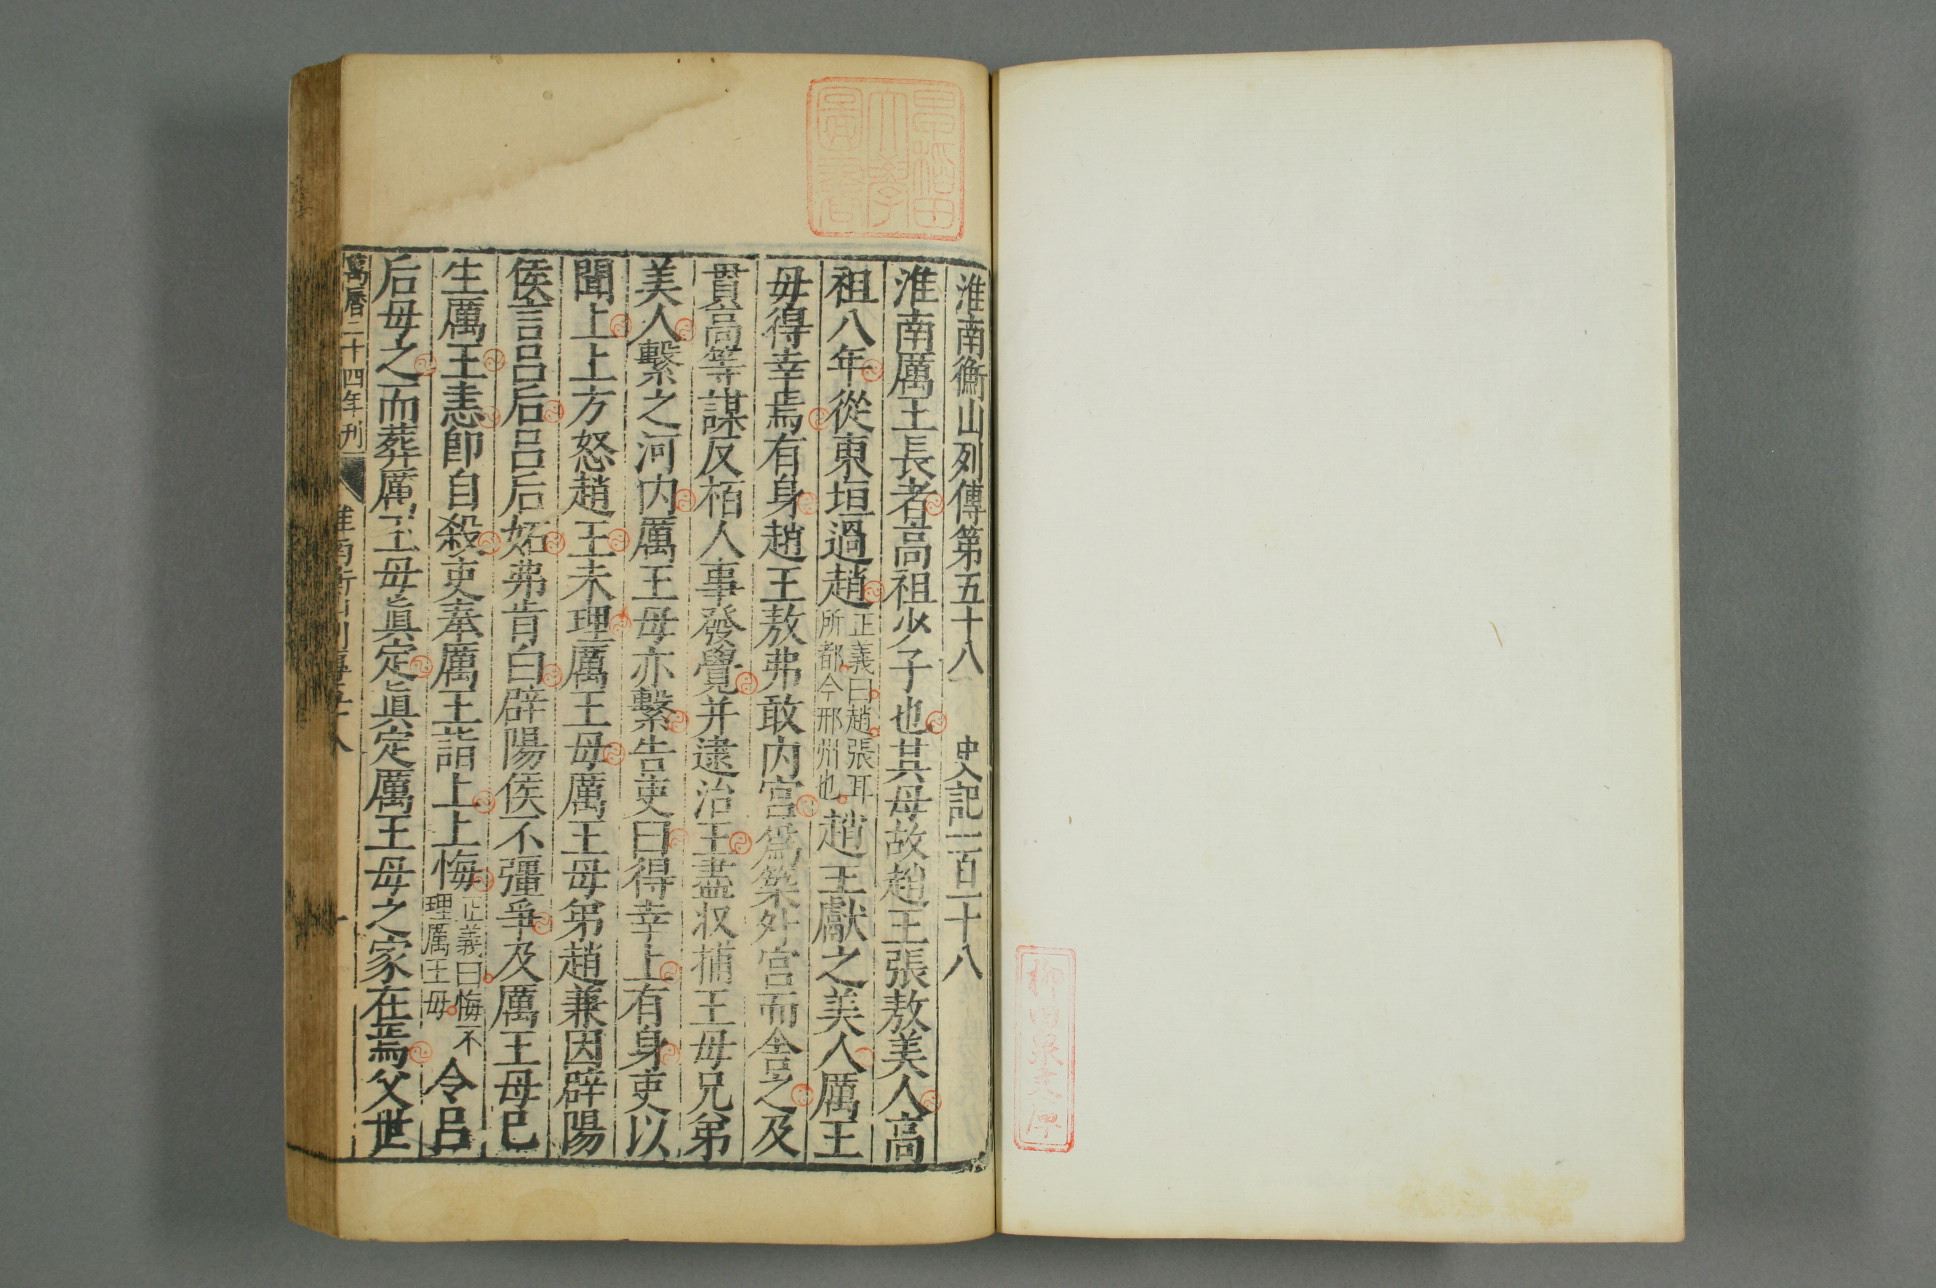 淮南衡山列傳第五十八 史記一百一十八
淮南厲王長者高祖少子也其母故趙王張敖美人高
祖八年從東垣過趙正義曰趙張耳所都今邢州也趙王獻之美人厲王
母得幸焉有身趙王敖弗敢内宮爲築外宮而舍之及
貫高等謀反栢人事發覺并逮治王盡収捕王母兄弟
美人繫之河内厲王母亦繫告吏曰得幸上有身吏以
聞上上方怒趙王未理厲王母厲王母弟趙兼因辟陽
侯言呂后呂后妬弗肯白辟陽侯不彊爭及厲王母已
生厲王恚即自殺吏奉厲王詣上上悔正義曰悔不理厲王母令呂
后母之而葬厲王母眞定眞定厲王母之家在焉父世
萬曆二十四年刊
淮南衡山列傳五十八
一
早稻田大學圖書
柳田泉文庫